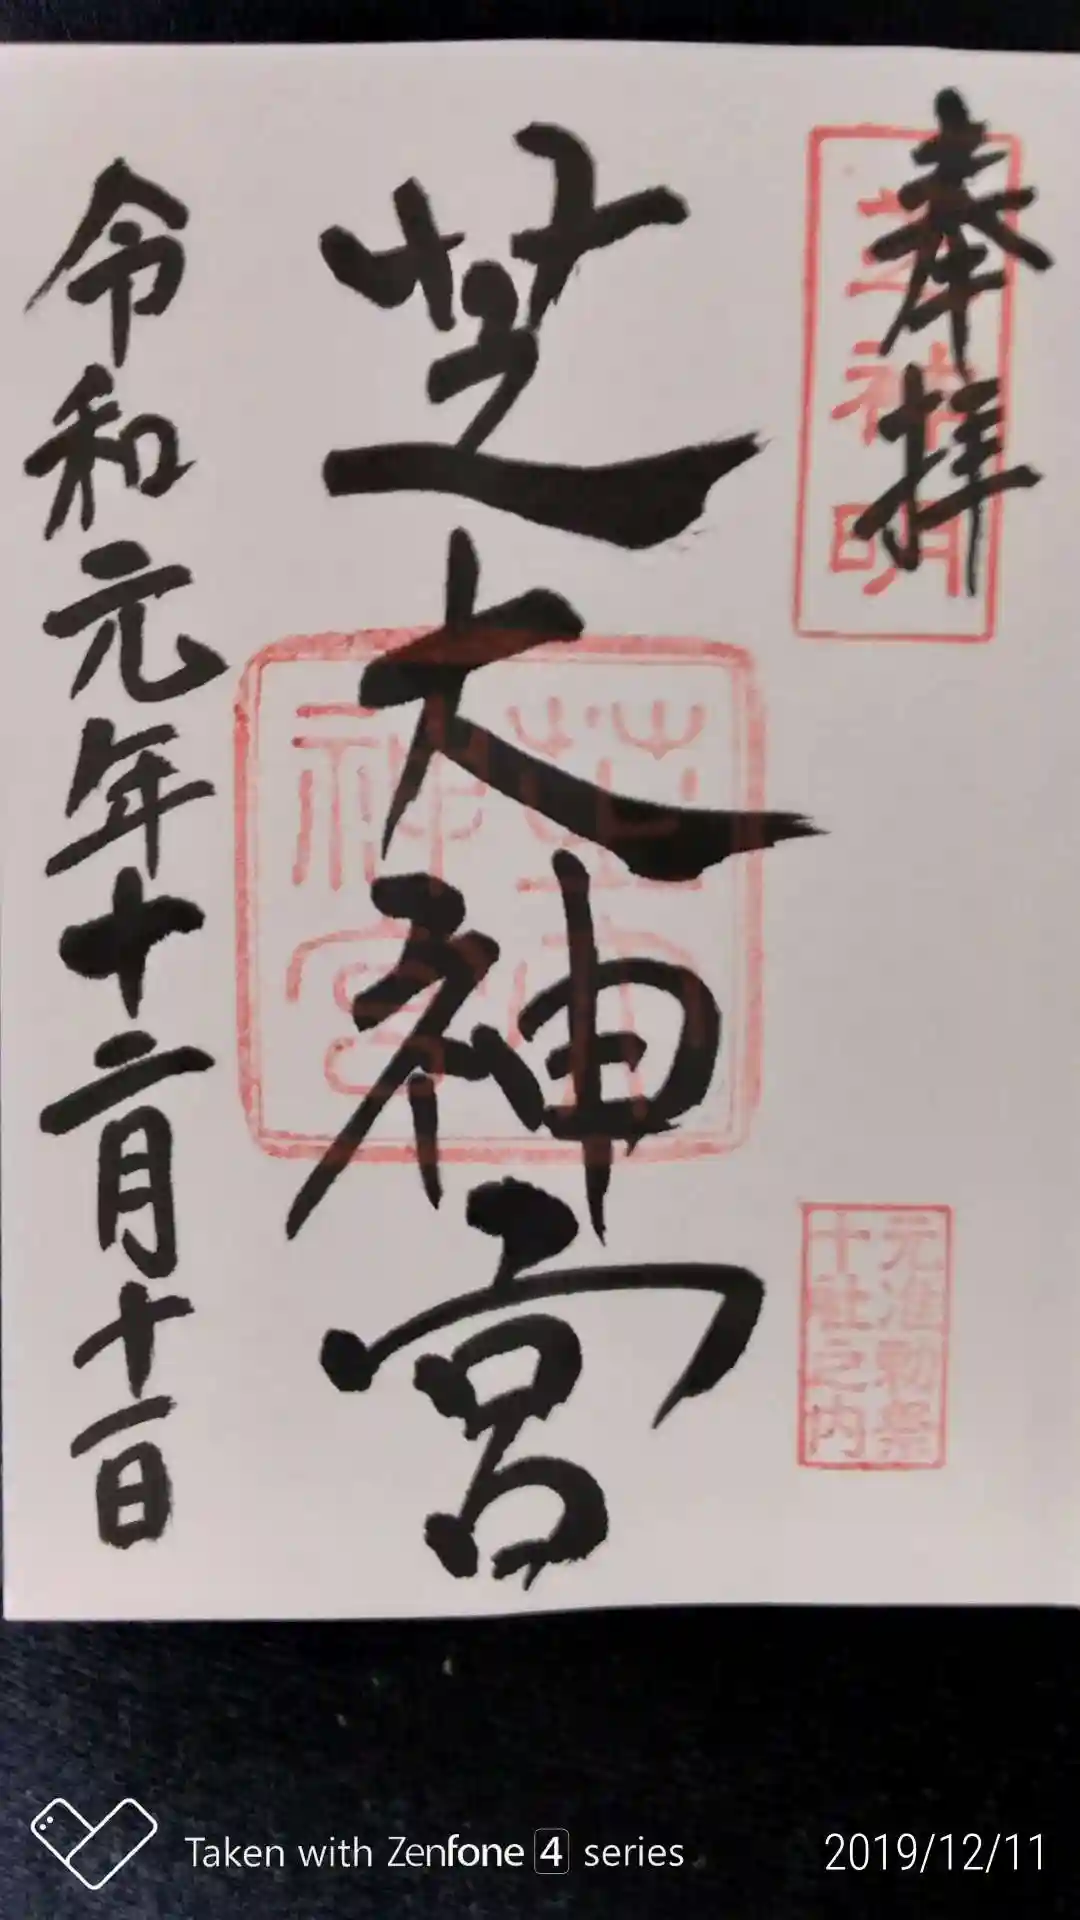 奉拝
芝神明
元准勅祭
十社之内
芝大神宮
芝大
神宮
令和元年十二月十一日
Taken with Zenfone 4 series
2019/12/11